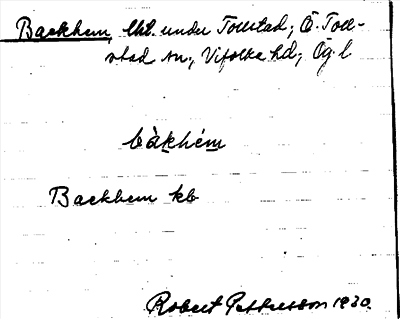 Backhem, lht. under Tollstad; Ö. Toll-
stad sn; Vifolka hd; Ög. l
bàkhém
Backhem kb
Robert Pettersson 1930